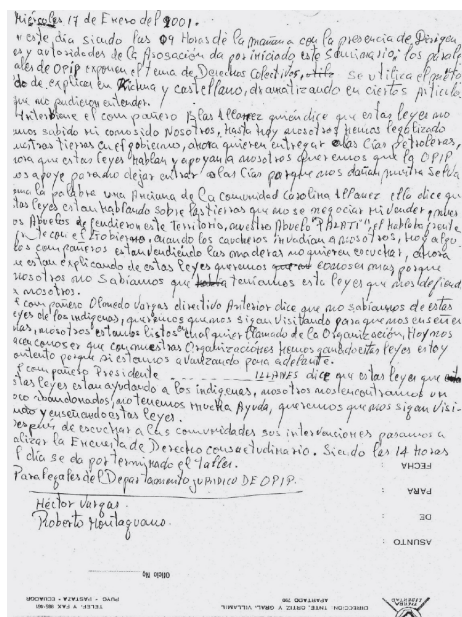 Miércoles 17 de Enero del 2001.
este día siendo las 09 Horas de la mañana con la presencia de Dirigen
es y autoridades de la Asosación da por iniciado este Seminario; los parale
ales de OPIP exponen el tema de Derechos Colectivos, se utiliza el
do de explicar en Kichua y castellano, dramatizando en ciertos Articulo
que no pudieron entender.
Interbiene el compañero Blas Illanez quién dice que estas leyes no
mos sabido ni conosido Nosotros, hasta hoy nosotros hemos legalizado
nuestras tierras en el gobierno, ahora quieren entregar a las Cías petroleras,
ora que estas leyes hablan y apoyan a nosotros queremos que la OPIP
os apoye para no dejar entrar a las Cías porque nos dañan nuestra Selva
oma la palabra una Anciana de la comunidad Carolina Illanez ella dice q
tas leyes estan hablando sobre las tierras que no se negociar ni vender, nues
os Abuelos defendieron este territorio, nuestro Abuelo "PALATI", el hablaba frente
frente con el Gobierno, cuando los caucheros invadian a nosotros, Hoy algu
los compañeros estan vendiendo las maderas no quieren escuchar, ahora
e estan explicando de estas leyes queremos conoser mas porque
nosotros no Sabiamos que teniamos esta leyes que nos defiend
a nosotros.
compañero Olmedo Vargas directivo Anterior dice que no sabiamos de estas
eyes de los indígenas, queremos que nos sigan Visitando para que nos enseñen
nosotros estamos listos cualquier llamado de la Organización, Hoy nos
acen conoser que con nuestras Organizaciónes hemos ganado estas leyes estoy
ontento porque si estamos avanzando para adelante.
compañero Presidente ILLANES dice que estas leyes que
stas leyes estan ayudando a los indígenas, nosotros nos encontramos un
oco abandonados, no tenemos mucha Ayuda, queremos que nos sigan Visi-
ndo y enseñando estas leyes.
espues de escuchar a las comunidades sus intervenciones pasamos a
alizar la Encuesta de Derecho consuetudinario. Siendo las 14 Horas
l día se da por terminado el taller.
Paralegales del Departamento JURIDICO DE OPIP.
Héctor Vargas.
Roberto Montaguano.
FECHA :
PARA :
DE :
ASUNTO :
Oficio No
DIRECCION: TNTE. ORTIZ Y GRAL. VILLAMIL
APARTADO 790
TELEF. Y FAX
PUYO - PASTAZA - ECUADOR